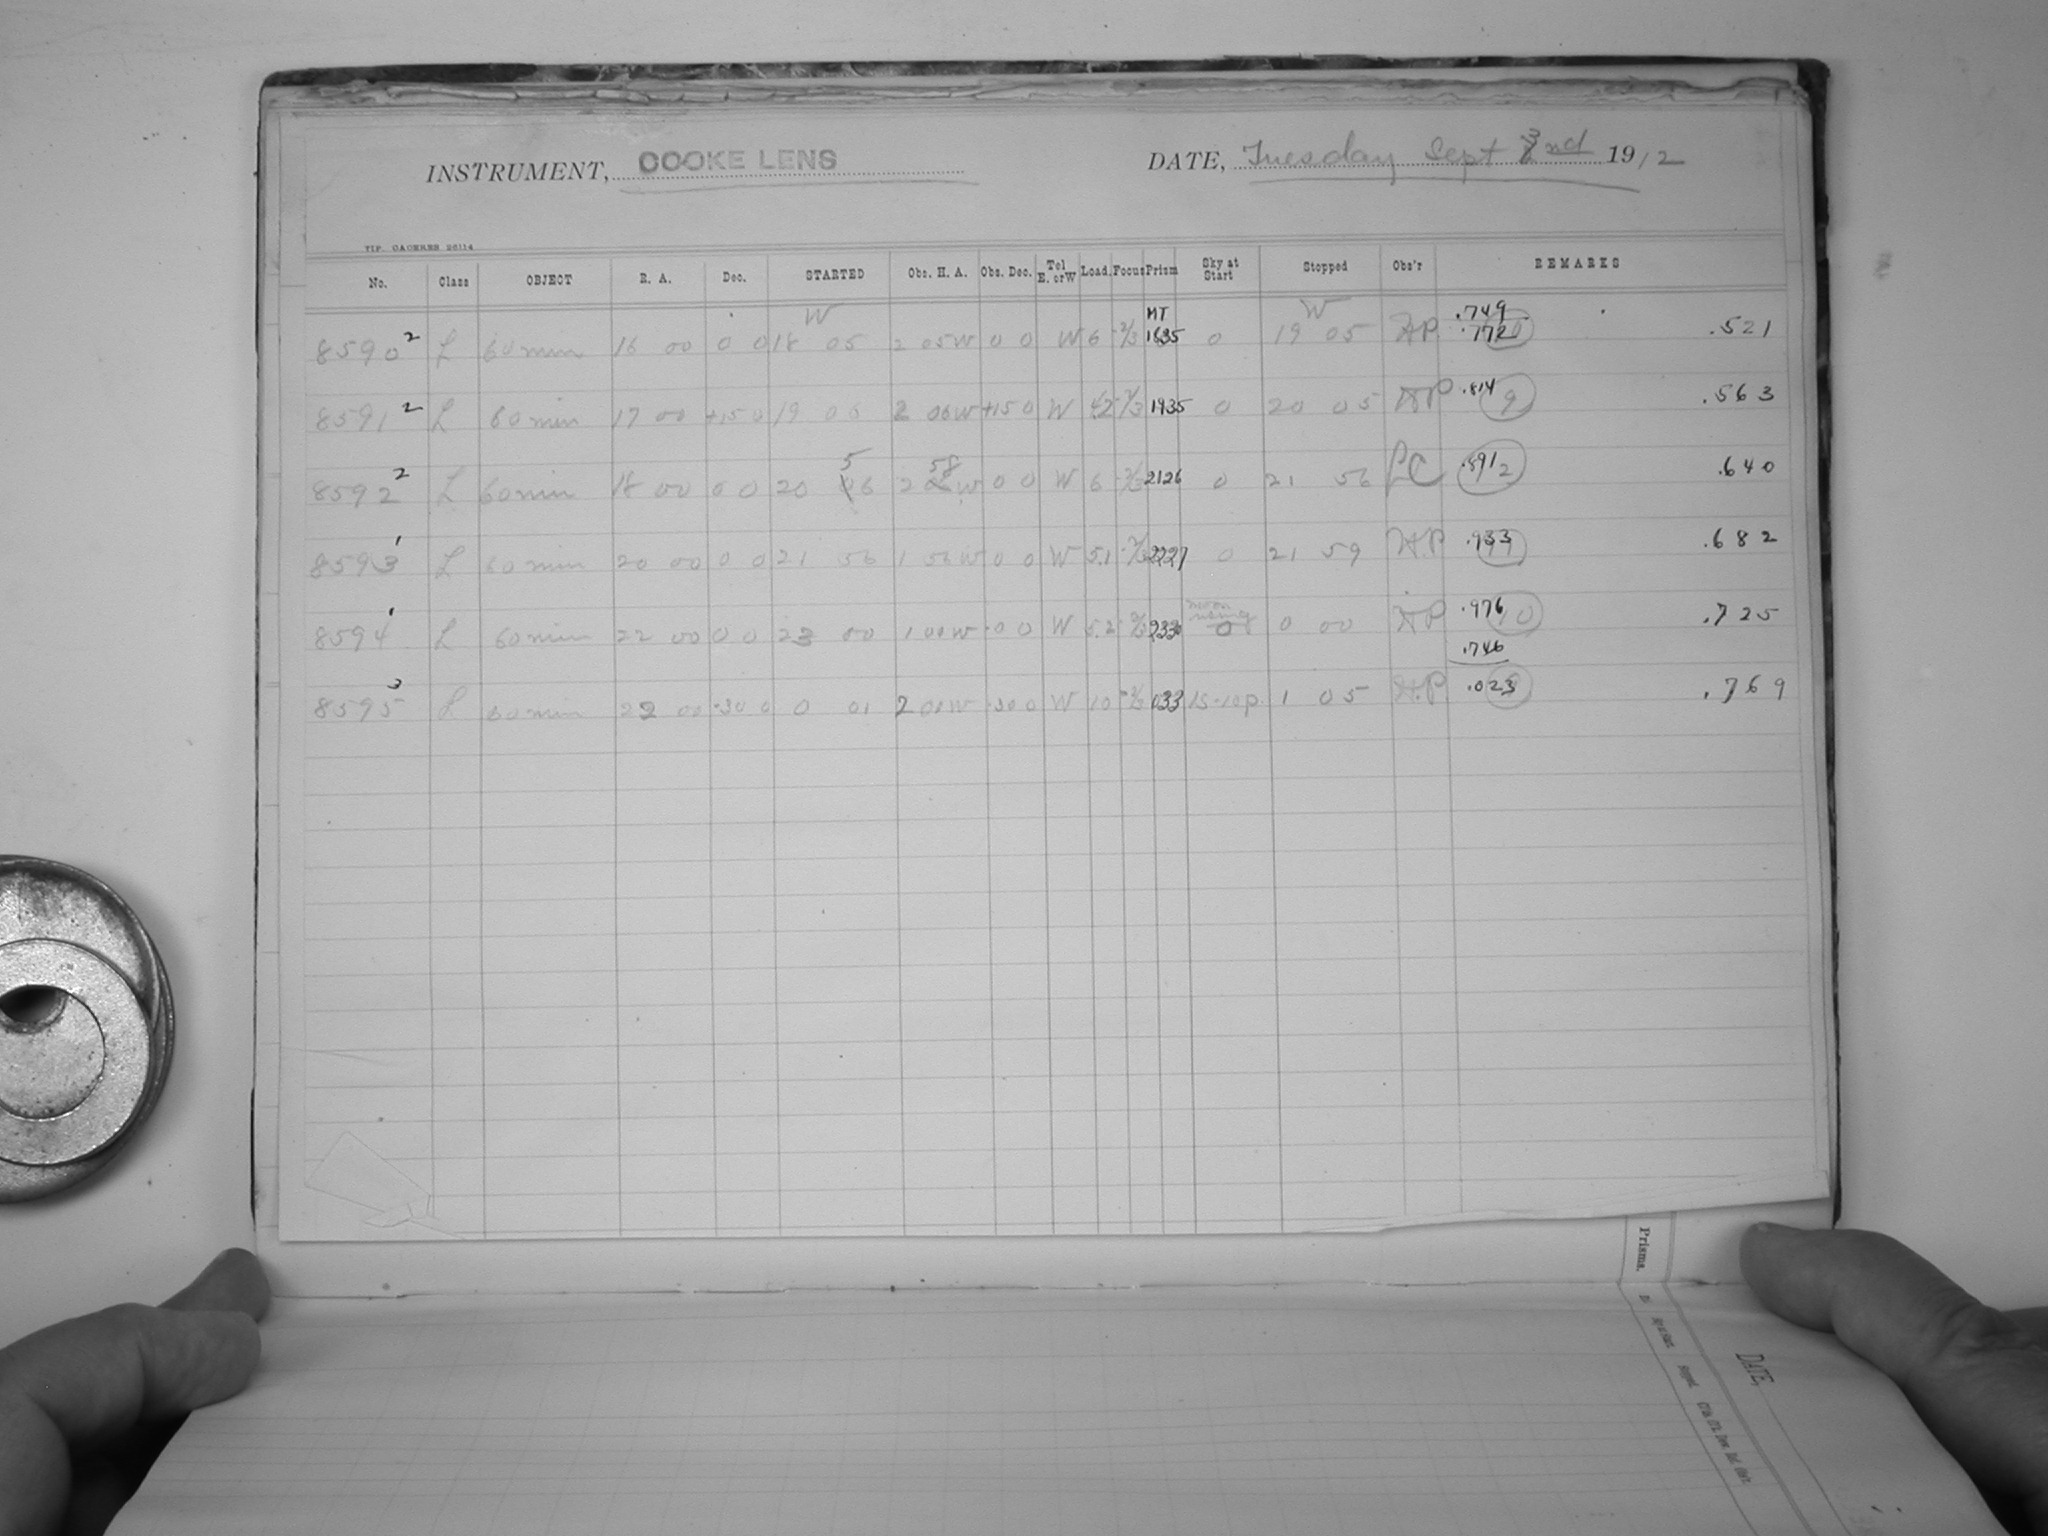 INSTRUMENT, COOKE LENS DATE, Tuesday Sept 3nd 1912
TIP. CACERES 26114
No. Class OBJECT R. A. Dec. STARTED Obs. H. A. Obs. Dec. Tel E. or W Load. Focus Prism Sky at Start Stopped Obs'r REMARKS
W MT W .749
8590 2 L 60 min 16 00 0 0 18 05 2 05 W 0 0 W 6 -2/3 1835 0 19 05 HP .772 .521
8591 2 L 60 min 17 00 +15 0 19 06 2 06 W +15 0 W 4.2 -2/3 1935 0 20 05 HP .814 9 .563
8592 2 L 60 min 18 00 0 0 20 56 2 58 W 0 0 W 6 -2/3 2126 0 21 56 LC .891 2 .640
8593 1 L 60 min 20 00 0 0 21 56 1 56 W 0 0 W 5.1 -2/3 2227 0 21 59 HP .933 .682
8594 1 L 60 min 22 00 0 0 23 00 1 00 W 0 0 W 5.2 -2/3 2330 moon rising 0 0 00 HP .976 10 .725
.746
8595 3 L 60 min 22 00 -30 0 0 01 2 00 W -30 0 W 10 -2/3 033 15-10p 1 05 HP .023 .769
Prisms.
DATE,